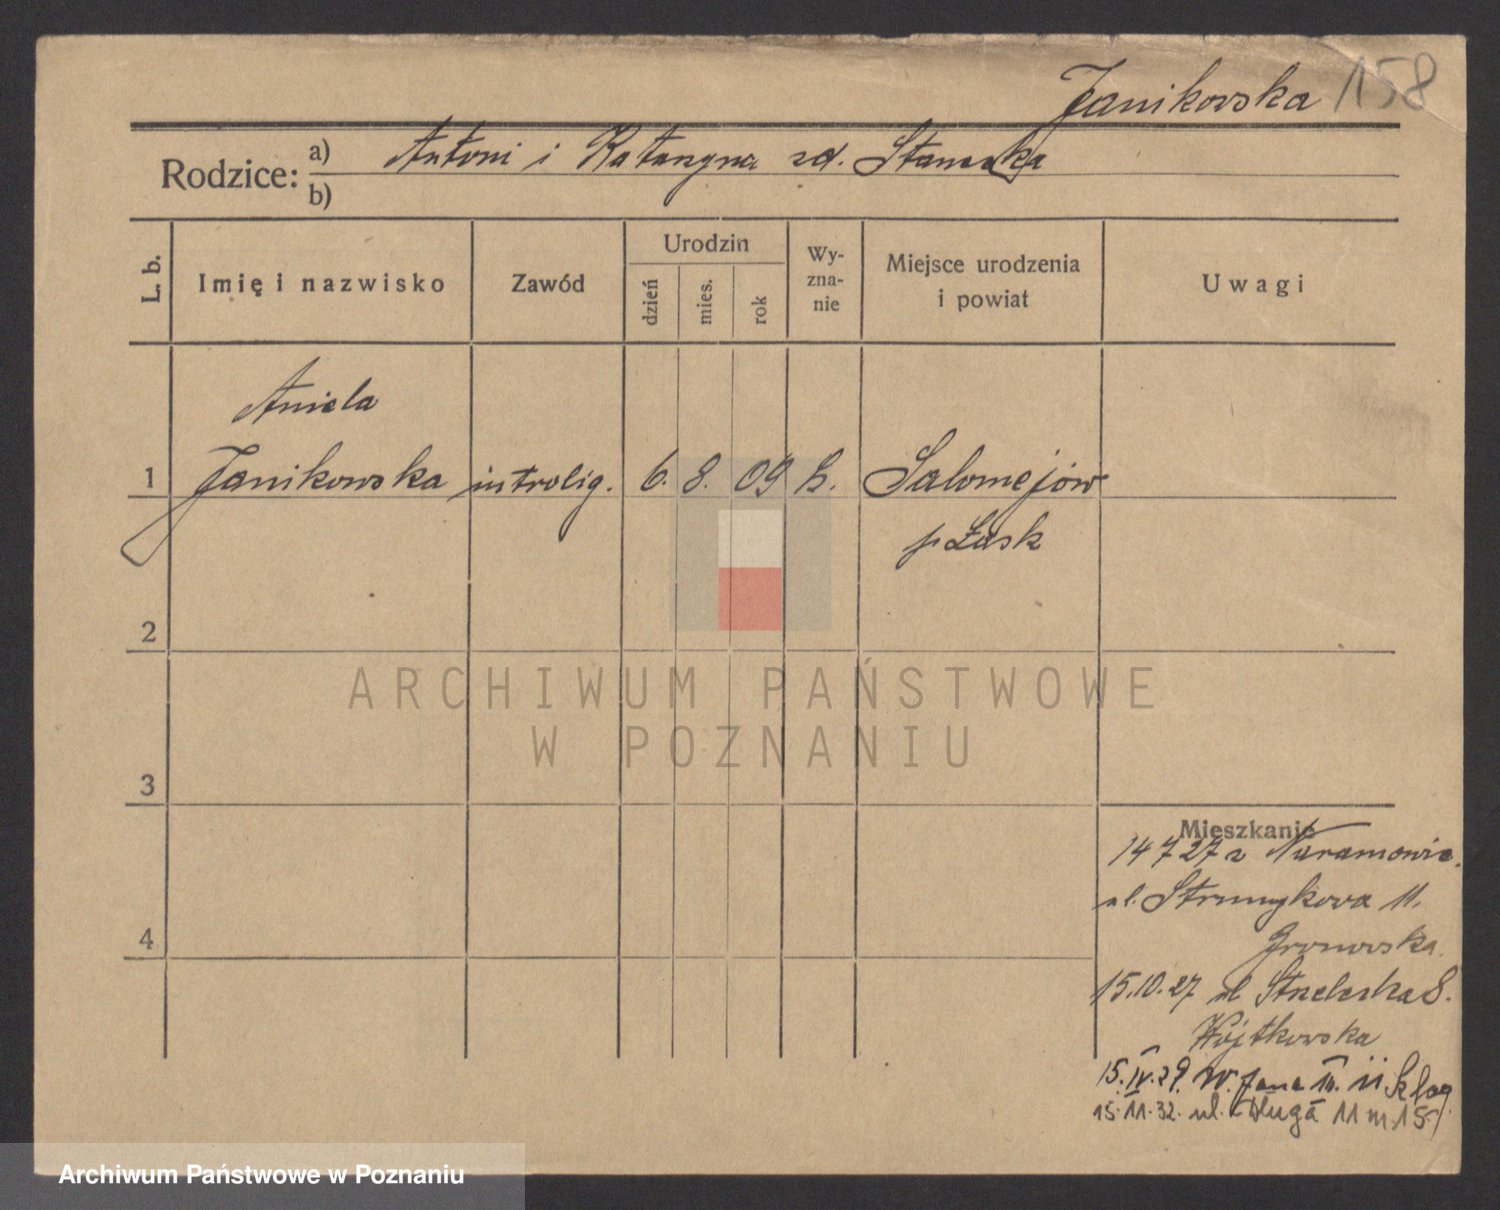 Janikowska 158
Rodzice: a) Antoni i Katarzyna zd.
b)
L. b.
Imię i nazwisko
Zawód
Urodzin
dzień
mies.
rok
Wy-
zna-
nie
Miejsce urodzenia
i powiat
Uwagi
Aniela
1 Janikowska introlig. 6. 8. 09 k. Salomejów
p Łask
2
3
4
ARCHIWUM PAŃSTWOWE
W POZNANIU
Mieszkanie
14 7 27 z Naramowic.
ul. Strumykowa 11.
Gronowska.
15.10.27 ul Strzelecka 8.
Wojtkowska
15.IV.29. w. Jana III. 11
15.11.32. ul. Długa 11 m. 15.
Archiwum Państwowe w Poznaniu